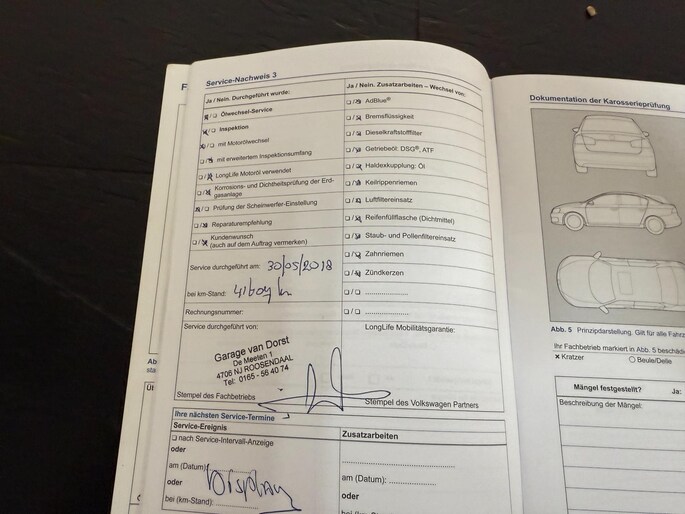 Service-Nachweis 3
Ja / Nein. Durchgeführt wurde:
☒/☐ Ölwechsel-Service
☒/☐ Inspektion
☒/☐ mit Motorölwechsel
☐/☒ mit erweitertem Inspektionsumfang
☐/☒ LongLife Motoröl verwendet
☐/☒ Korrosions- und Dichtheitsprüfung der Erd-
gasanlage
☒/☐ Prüfung der Scheinwerfer-Einstellung
☐/☒ Reparaturempfehlung
☐/☒ Kundenwunsch
(auch auf dem Auftrag vermerken)
Service durchgeführt am: 30/05/2018
bei km-Stand:
Rechnungsnummer:
Service durchgeführt von:
Garage van Dorst
De Meeten 1
4706 NJ ROOSENDAAL
Tel: 0165 - 56 40 74
Stempel des Fachbetriebs
Ja / Nein. Zusatzarbeiten – Wechsel von:
☐/☒ AdBlue®
☐/☒ Bremsflüssigkeit
☐/☒ Dieselkraftstofffilter
☐/☒ Getriebeöl: DSG®, ATF
☐/☒ Haldexkupplung: Öl
☐/☒ Keilrippenriemen
☐/☒ Luftfiltereinsatz
☐/☒ Reifenfüllflasche (Dichtmittel)
☐/☒ Staub- und Pollenfiltereinsatz
☐/☒ Zahnriemen
☐/☒ Zündkerzen
☐/☐ ....................
☐/☐ ....................
LongLife Mobilitätsgarantie:
Stempel des Volkswagen Partners
Ihre nächsten Service-Termine
Service-Ereignis
☐ nach Service-Intervall-Anzeige
oder
am (Datum):
oder
Display
bei (km-Stand):
Zusatzarbeiten
am (Datum):
oder
Dokumentation der Karosserieprüfung
Abb. 5 Prinzipdarstellung. Gilt für alle
Ihr Fachbetrieb markiert in Abb. 5
× Kratzer
○ Beule/Delle
Mängel festgestellt? Ja:
Beschreibung der Mängel: